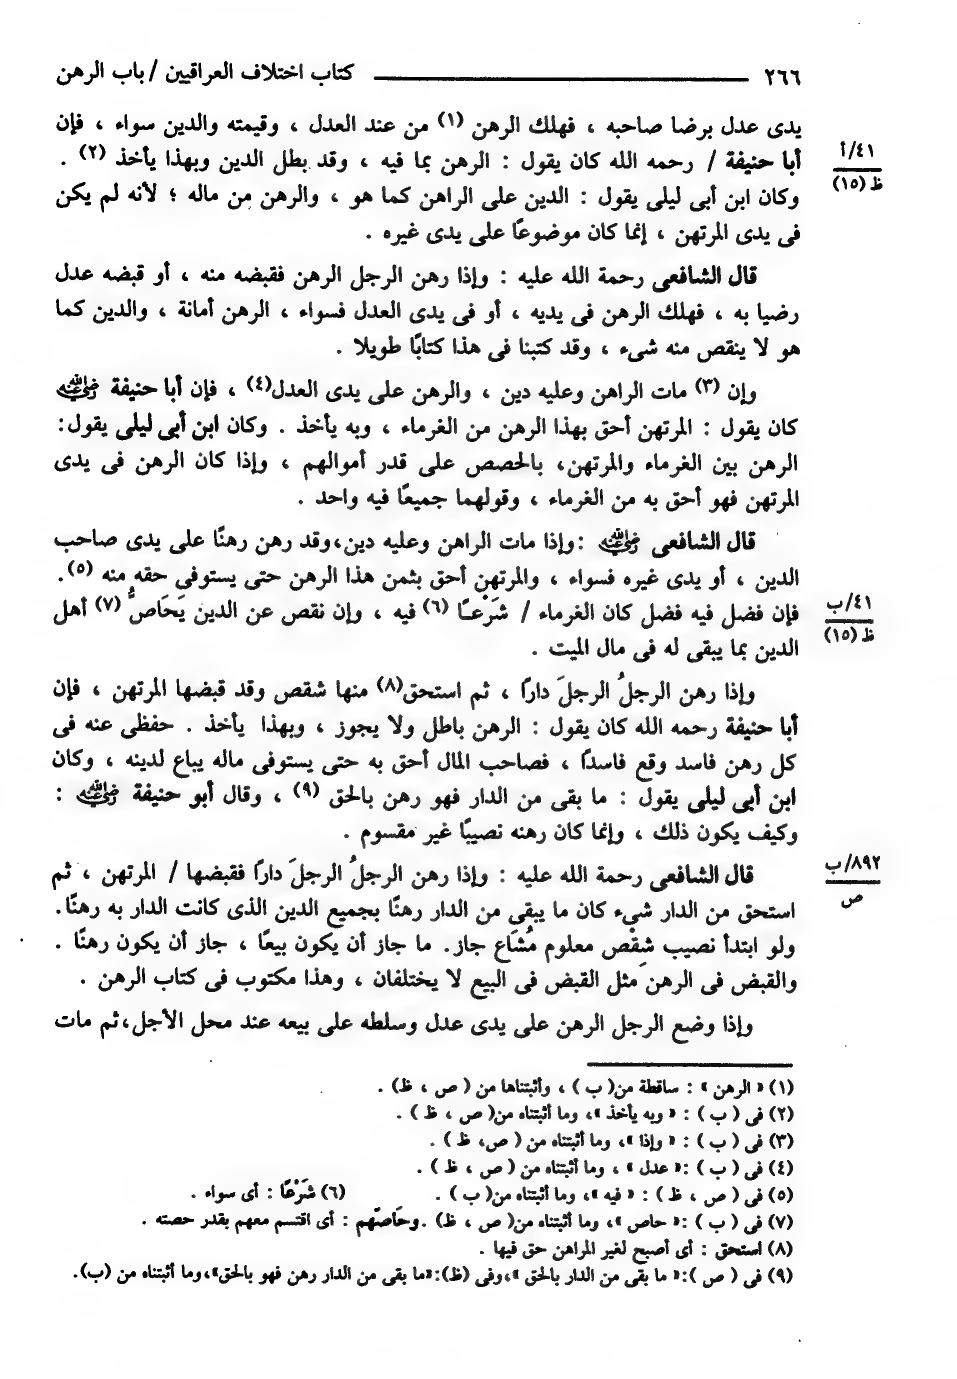 ٢٦٦ كتاب اختلاف العراقيين / باب الرهن
يدى عدل برضا صاحبه ، فهلك الرهن (١) من عند العدل ، وقيمته والدين سواء ، فإن
أبا حنيفة / رحمه الله كان يقول : الرهن بما فيه ، وقد بطل الدين وبهذا يأخذ (٢) .
٤١/أ
ظ (١٥)
وكان ابن أبى ليلى يقول : الدين على الراهن كما هو ، والرهن من ماله ؛ لأنه لم يكن
فى يدى المرتهن ، إنما كان موضوعًا على يدى غيره .
قال الشافعى رحمة الله عليه : وإذا رهن الرجل الرهن فقبضه منه ، أو قبضه عدل
رضيا به ، فهلك الرهن فى يديه ، أو فى يدى العدل فسواء ، الرهن أمانة ، والدين كما
هو لا ينقص منه شىء ، وقد كتبنا فى هذا كتابًا طويلا .
وإن (٣) مات الراهن وعليه دين ، والرهن على يدى العدل(٤) ، فإن أبا حنيفة رضي الله عنه
كان يقول : المرتهن أحق بهذا الرهن من الغرماء ، وبه يأخذ . وكان ابن أبى ليلى يقول:
الرهن بين الغرماء والمرتهن، بالحصص على قدر أموالهم ، وإذا كان الرهن فى يدى
المرتهن فهو أحق به من الغرماء ، وقولهما جميعًا فيه واحد .
قال الشافعى رضي الله عنه :وإذا مات الراهن وعليه دين،وقد رهن رهنًا على يدى صاحب
الدين ، أو يدى غيره فسواء ، والمرتهن أحق بثمن هذا الرهن حتى يستوفى حقه منه (٥).
فإن فضل فيه فضل كان الغرماء / شَرْعًا (٦) فيه ، وإن نقص عن الدين يَحَاصُّ (٧) أهل
٤١/ب
ظ (١٥)
الدين بما يبقى له فى مال الميت .
وإذا رهن الرجلُ الرجلَ دارًا ، ثم استحق(٨) منها شقص وقد قبضها المرتهن ، فإن
أبا حنيفة رحمه الله كان يقول : الرهن باطل ولا يجوز ، وبهذا يأخذ . حفظى عنه فى
كل رهن فاسد وقع فاسدًا ، فصاحب المال أحق به حتى يستوفى ماله يباع لدينه ، وكان
ابن أبى ليلى يقول : ما بقى من الدار فهو رهن بالحق (٩) ، وقال أبو حنيفة رضي الله عنه :
وكيف يكون ذلك ، وإنما كان رهنه نصيبًا غير مقسوم .
قال الشافعى رحمة الله عليه : وإذا رهن الرجلُ الرجلَ دارًا فقبضها / المرتهن ، ثم
٨٩٢/ب
ص
استحق من الدار شىء كان ما يبقى من الدار رهنًا بجميع الدين الذى كانت الدار به رهنًا.
ولو ابتدأ نصيب شِقْص معلوم مُشَاع جاز. ما جاز أن يكون بيعًا ، جاز أن يكون رهنًا .
والقبض فى الرهن مثل القبض فى البيع لا يختلفان ، وهذا مكتوب فى كتاب الرهن .
وإذا وضع الرجل الرهن على يدى عدل وسلطه على بيعه عند محل الأجل،ثم مات
(١) « الرهن » : ساقطة من( ب ) ، وأثبتناها من ( ص ، ظ) .
(٢) فى ( ب ) : « وبه يأخذ »، وما أثبتناه من( ص ، ظ ) .
(٣) فى ( ب ) : « وإذا »، وما أثبتناه من ( ص، ظ ) .
(٤) فى ( ب ) :« عدل » ، وما أثبتناه من ( ص ، ظ ) .
(٥) فى ( ص ، ظ ) : « فيه »، وما أثبتناه من( ب ) . (٦) شَرْعًا : أى سواء .
(٧) فى ( ب ) :« حاص »، وما أثبتناه من( ص ، ظ) .وحَاصّهم : أى اقتسم معهم بقدر حصته .
(٨) استحق : أى أصبح لغير الراهن حق فيها .
(٩) فى ( ص ):« ما بقى من الدار بالحق »،وفى (ظ):«ما بقى من الدار رهن فهو بالحق»،وما أثبتناه من (ب).